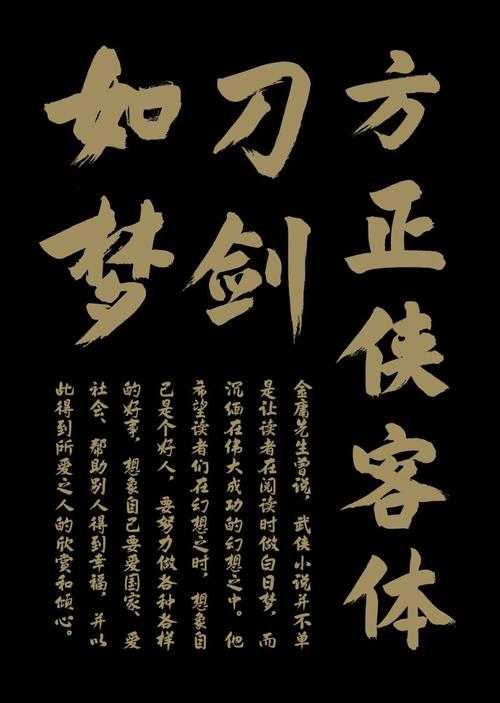 方正侠客体
刀剑
如梦
金庸先生曾说，武侠小说并不单
是让读者在阅读时做白日梦，而
沉缅在伟大成功的幻想之中。他
希望读者们在幻想之时，想象自
己是个好人，要努力做各种各样
的好事，想象自己要爱国家、爱
社会、帮助别人得到幸福，并以
此得到所爱之人的欣赏和倾心。